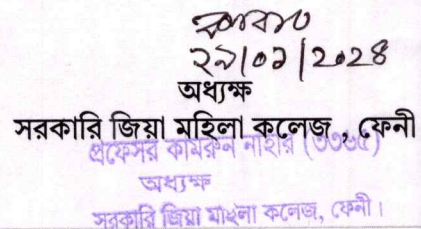 ২৯/০১/২০২৪
অধ্যক্ষ
সরকারি জিয়া মহিলা কলেজ , ফেনী
প্রফেসর কামরুন নাহার
অধ্যক্ষ
সরকারি জিয়া মহিলা কলেজ, ফেনী।